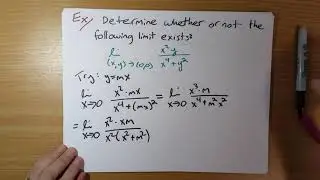 Ex/ Determine whether or not the
following limit exists?
lim (x,y)→(0,0) x²y / x⁴+y²
Try: y=mx
lim x→0 x²·mx / x⁴+(mx)² = lim x→0 x³·m / x⁴+m²x²
= lim x→0 x²·xm / x²(x²+m²)